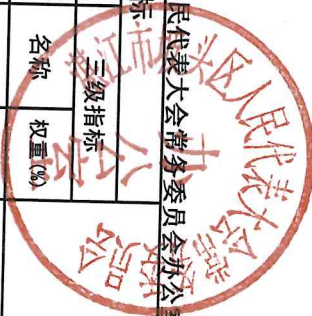 民代表大会常务委员会办公室
标
三级指标
名称 权重(%)
江市 头区人民代表大会常务委员会
办公室